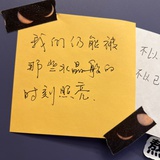 我们仍能被
那些水晶般的
时刻照亮.
不以
不以己